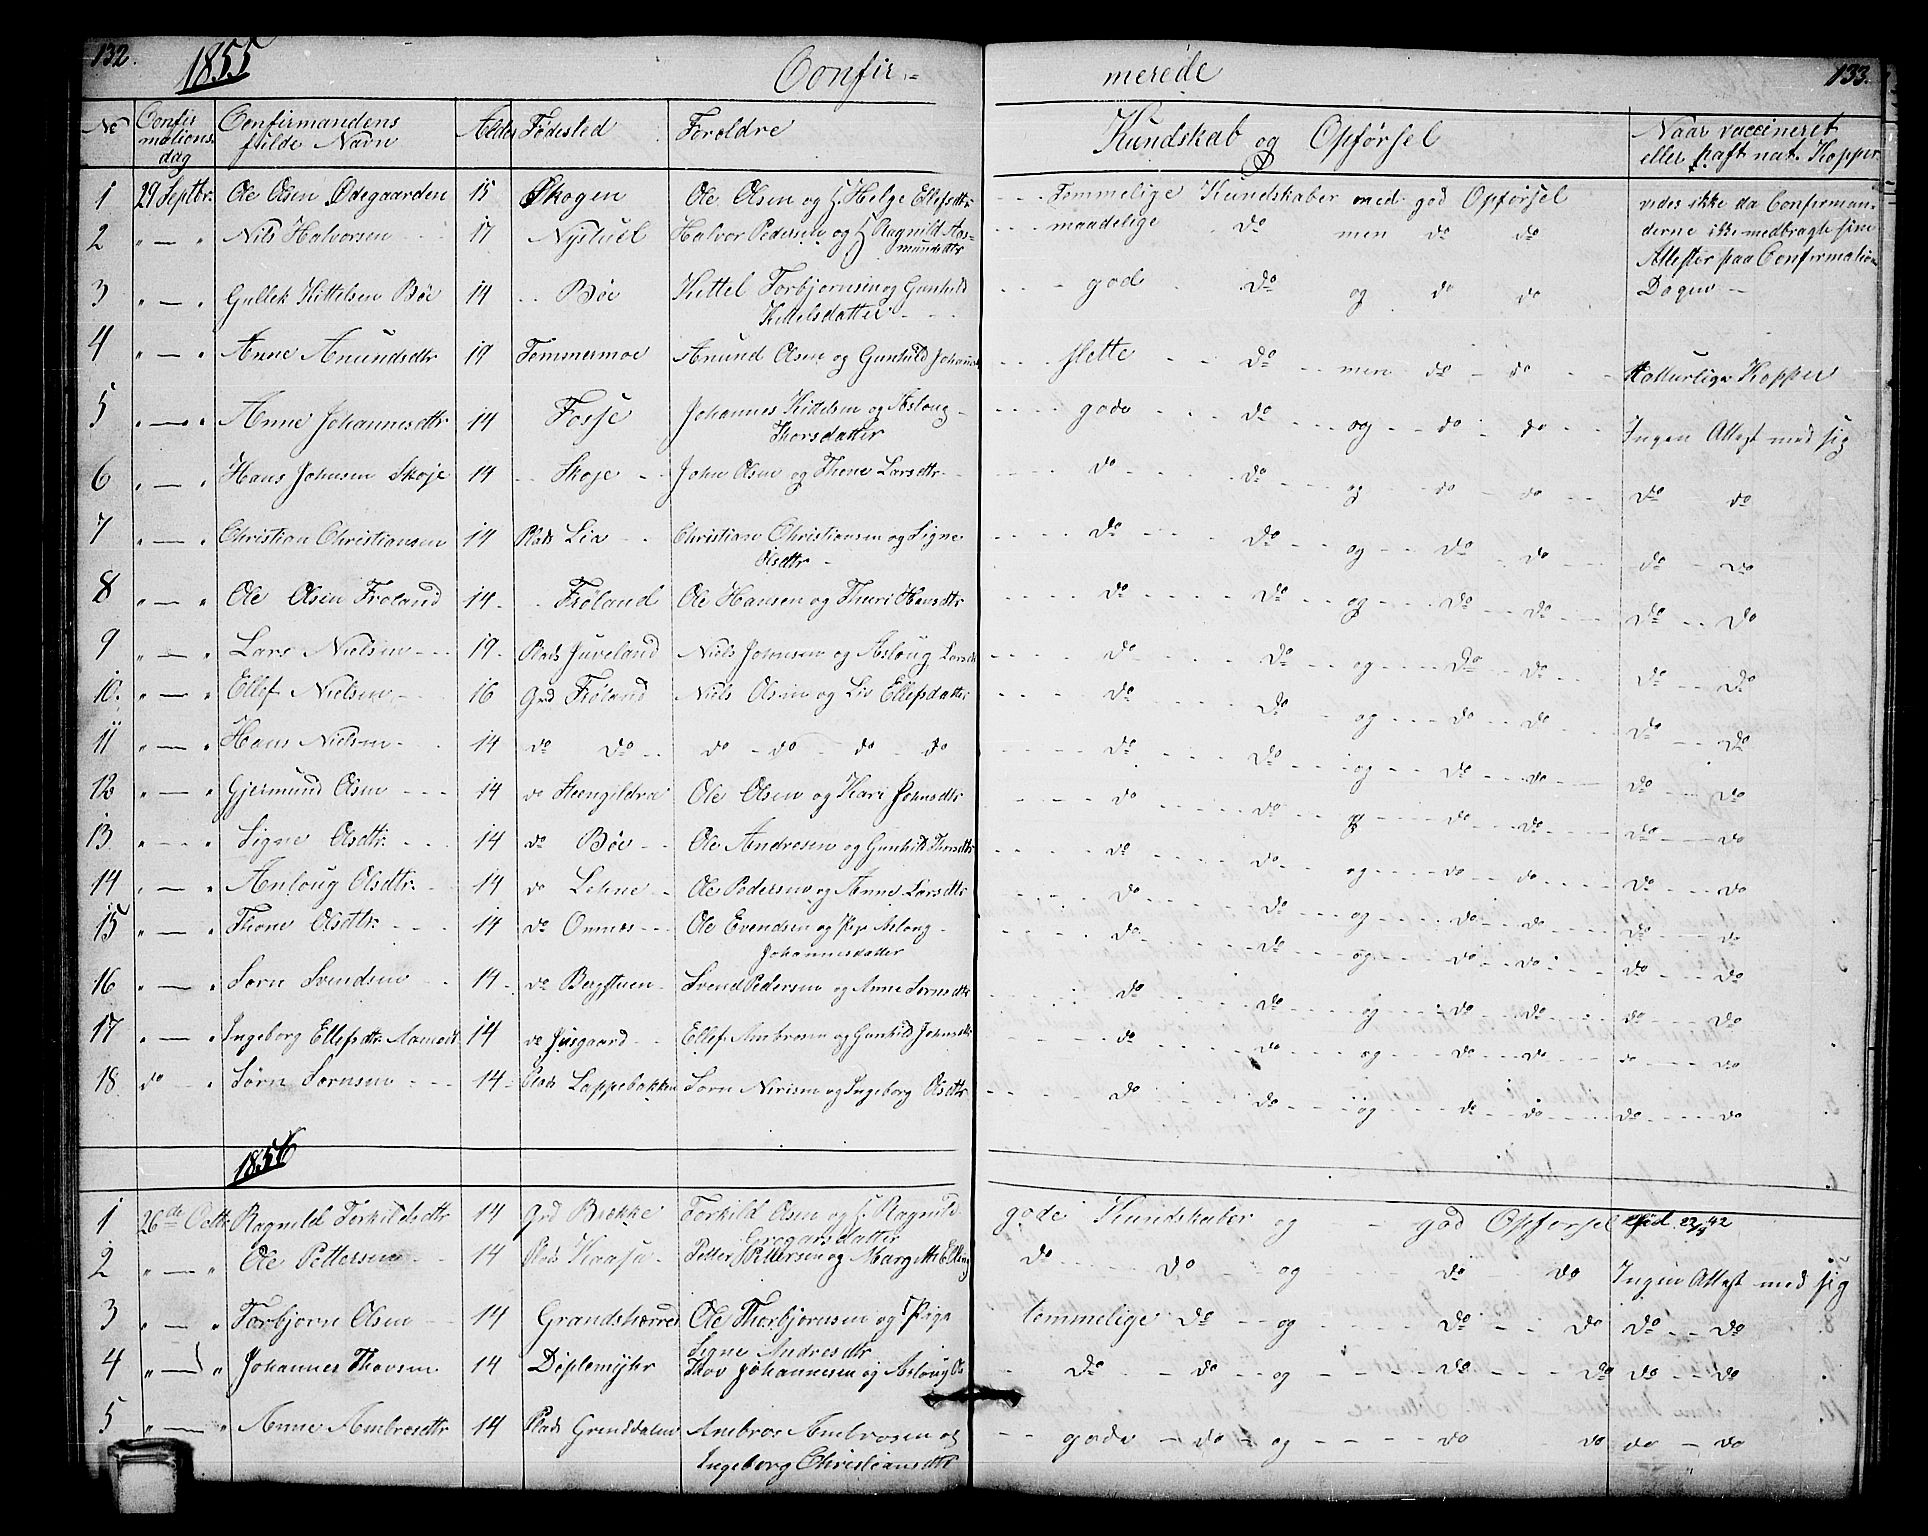 132.
1855
Confir-
merede
133.
No
Confirmationsdag
Confirmandens fulde Navn
Alder
Fødested
Foreldre
Kundskab og Opførsel
Naar vaccineret eller haft nat. Kopper
1 29 Septbr. Ole Olsen Ødegaarden 15 Skogen Ole Olsen og Helge Ellefsdtr --- Temmelige Kundskaber med god Opførsel vides ikke da Confirman-
2 " — " Nils Halvorsen 17 Nystuel Halvor Pedersen og Ragnild Aas- --- maadelige do men do do derne ikke medbragte sine
mundsdtr Attester paa Confirmations
3 " — " Gullek Kittelsen Bøe 14 Bøe Kittel Torbjørnsen og Gunhild --- gode do og do do Dagen —
Kittelsdatter
4 " — " Anne Anundsdtr 19 Tømmermoe Anund Olsen og Gunhild --- slette do men do do Naturlige Kopper
5 " — " Anne Johannesdtr 14 Fosse Johannes Kittelsen og Asloug --- gode do og do do Ingen Attest med sig
Thorsdatter
6 " — " Hans Johnsen Skoje 14 Skoje John Olsen og Thone Larsdtr do do og do do do do
7 " — " Christian Christiansen 14 Plads Lia Christian Christiansen og Signe do do og do do do do
Olsdtr
8 " — " Ole Olsen Frøland 14 Frøland Ole Hansen og Thuri Hansdtr do do og do do do do
9 " — " Lars Nielsen 19 Plads Juveland Niels Johnsen og Asloug Larsdtr do do og do do do do
10. " — " Ellef Nielsen 16 Grd Frøland Niels Olsen og Liv Ellefsdatter do do og do do do do
11 " — " Hans Nielsen 14 do do do do do do do do og do do do do
12 " — " Gjermund Olsen 14 do Ole Olsen og Kari Johnsdtr do do og do do do do
13. " — " Signe Olsdtr. 14 do Bøe Ole Andresen og Gunhild Thorsdtr do do og do do do do
14 " — " Anloug Olsdtr. 14 do Lehne Ole Pedersen og Anne Larsdtr do do og do do do do
15 " — " Thone Olsdtr. 14 do Omnes Ole Evendsen og Aslong do do og do do do do
Johannesdatter
16 " — " Sørn Svendsen 14 do Bergstuen Svend Pedersen og Anne Sørnsdtr do do og do do do do
17 " — " Ingeborg Ellefsdtr. 14 do Ellef Ambrosen og Gunhild Johnsdtr do do og do do do do
18. do " Sørn Sørnsen 14 Plads Loppebakken Sørn Nirisen og Ingeborg Olsdtr do do og do do do do
1856
1 26de Octbr Ragnild Terkildsdtr 14 Grd Brekke Torkild Olsen og Ragnild gode Kundskaber og god Opførsel 42
Gregarsdatter
2 " — " Ole Pettersen 14 Plads Kaasa Petter Pettersen og Margitte do do og do do Ingen Attest med sig
3 " — " Torbjørn Olsen 14 Ole Thorbjørnsen og Pige temmelige do og do do do do
Signe Andresdtr
4 " — " Johannes Thovsen 14 Døplemyhr Thov Johannesen og Asloug do do og do do do do
5 " — " Anne Ambrosdtr 14 Plads Grønddalen Ambros Ambrosen og gode do og do do do do
Ingeborg Christiansdtr